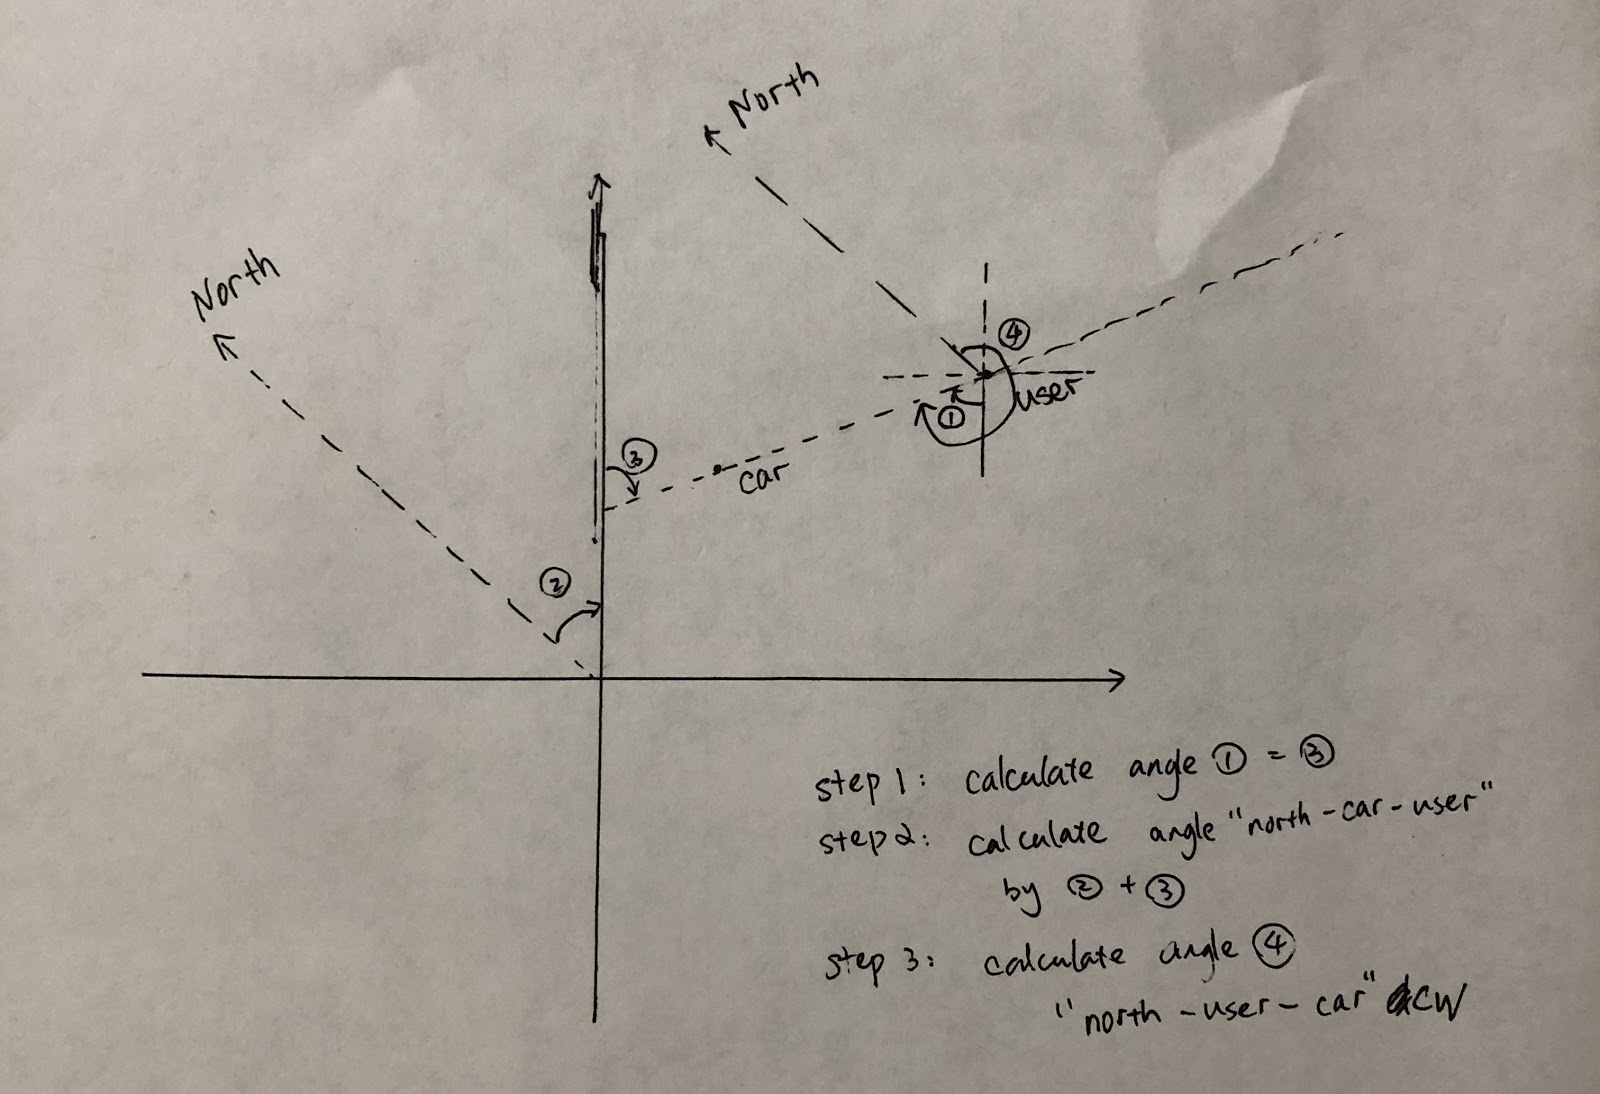 North
North
④
user
①
③
car
②
step 1: calculate angle ① = ③
step 2: calculate angle "north-car-user"
by ② + ③
step 3: calculate angle ④
"north-user-car" CW